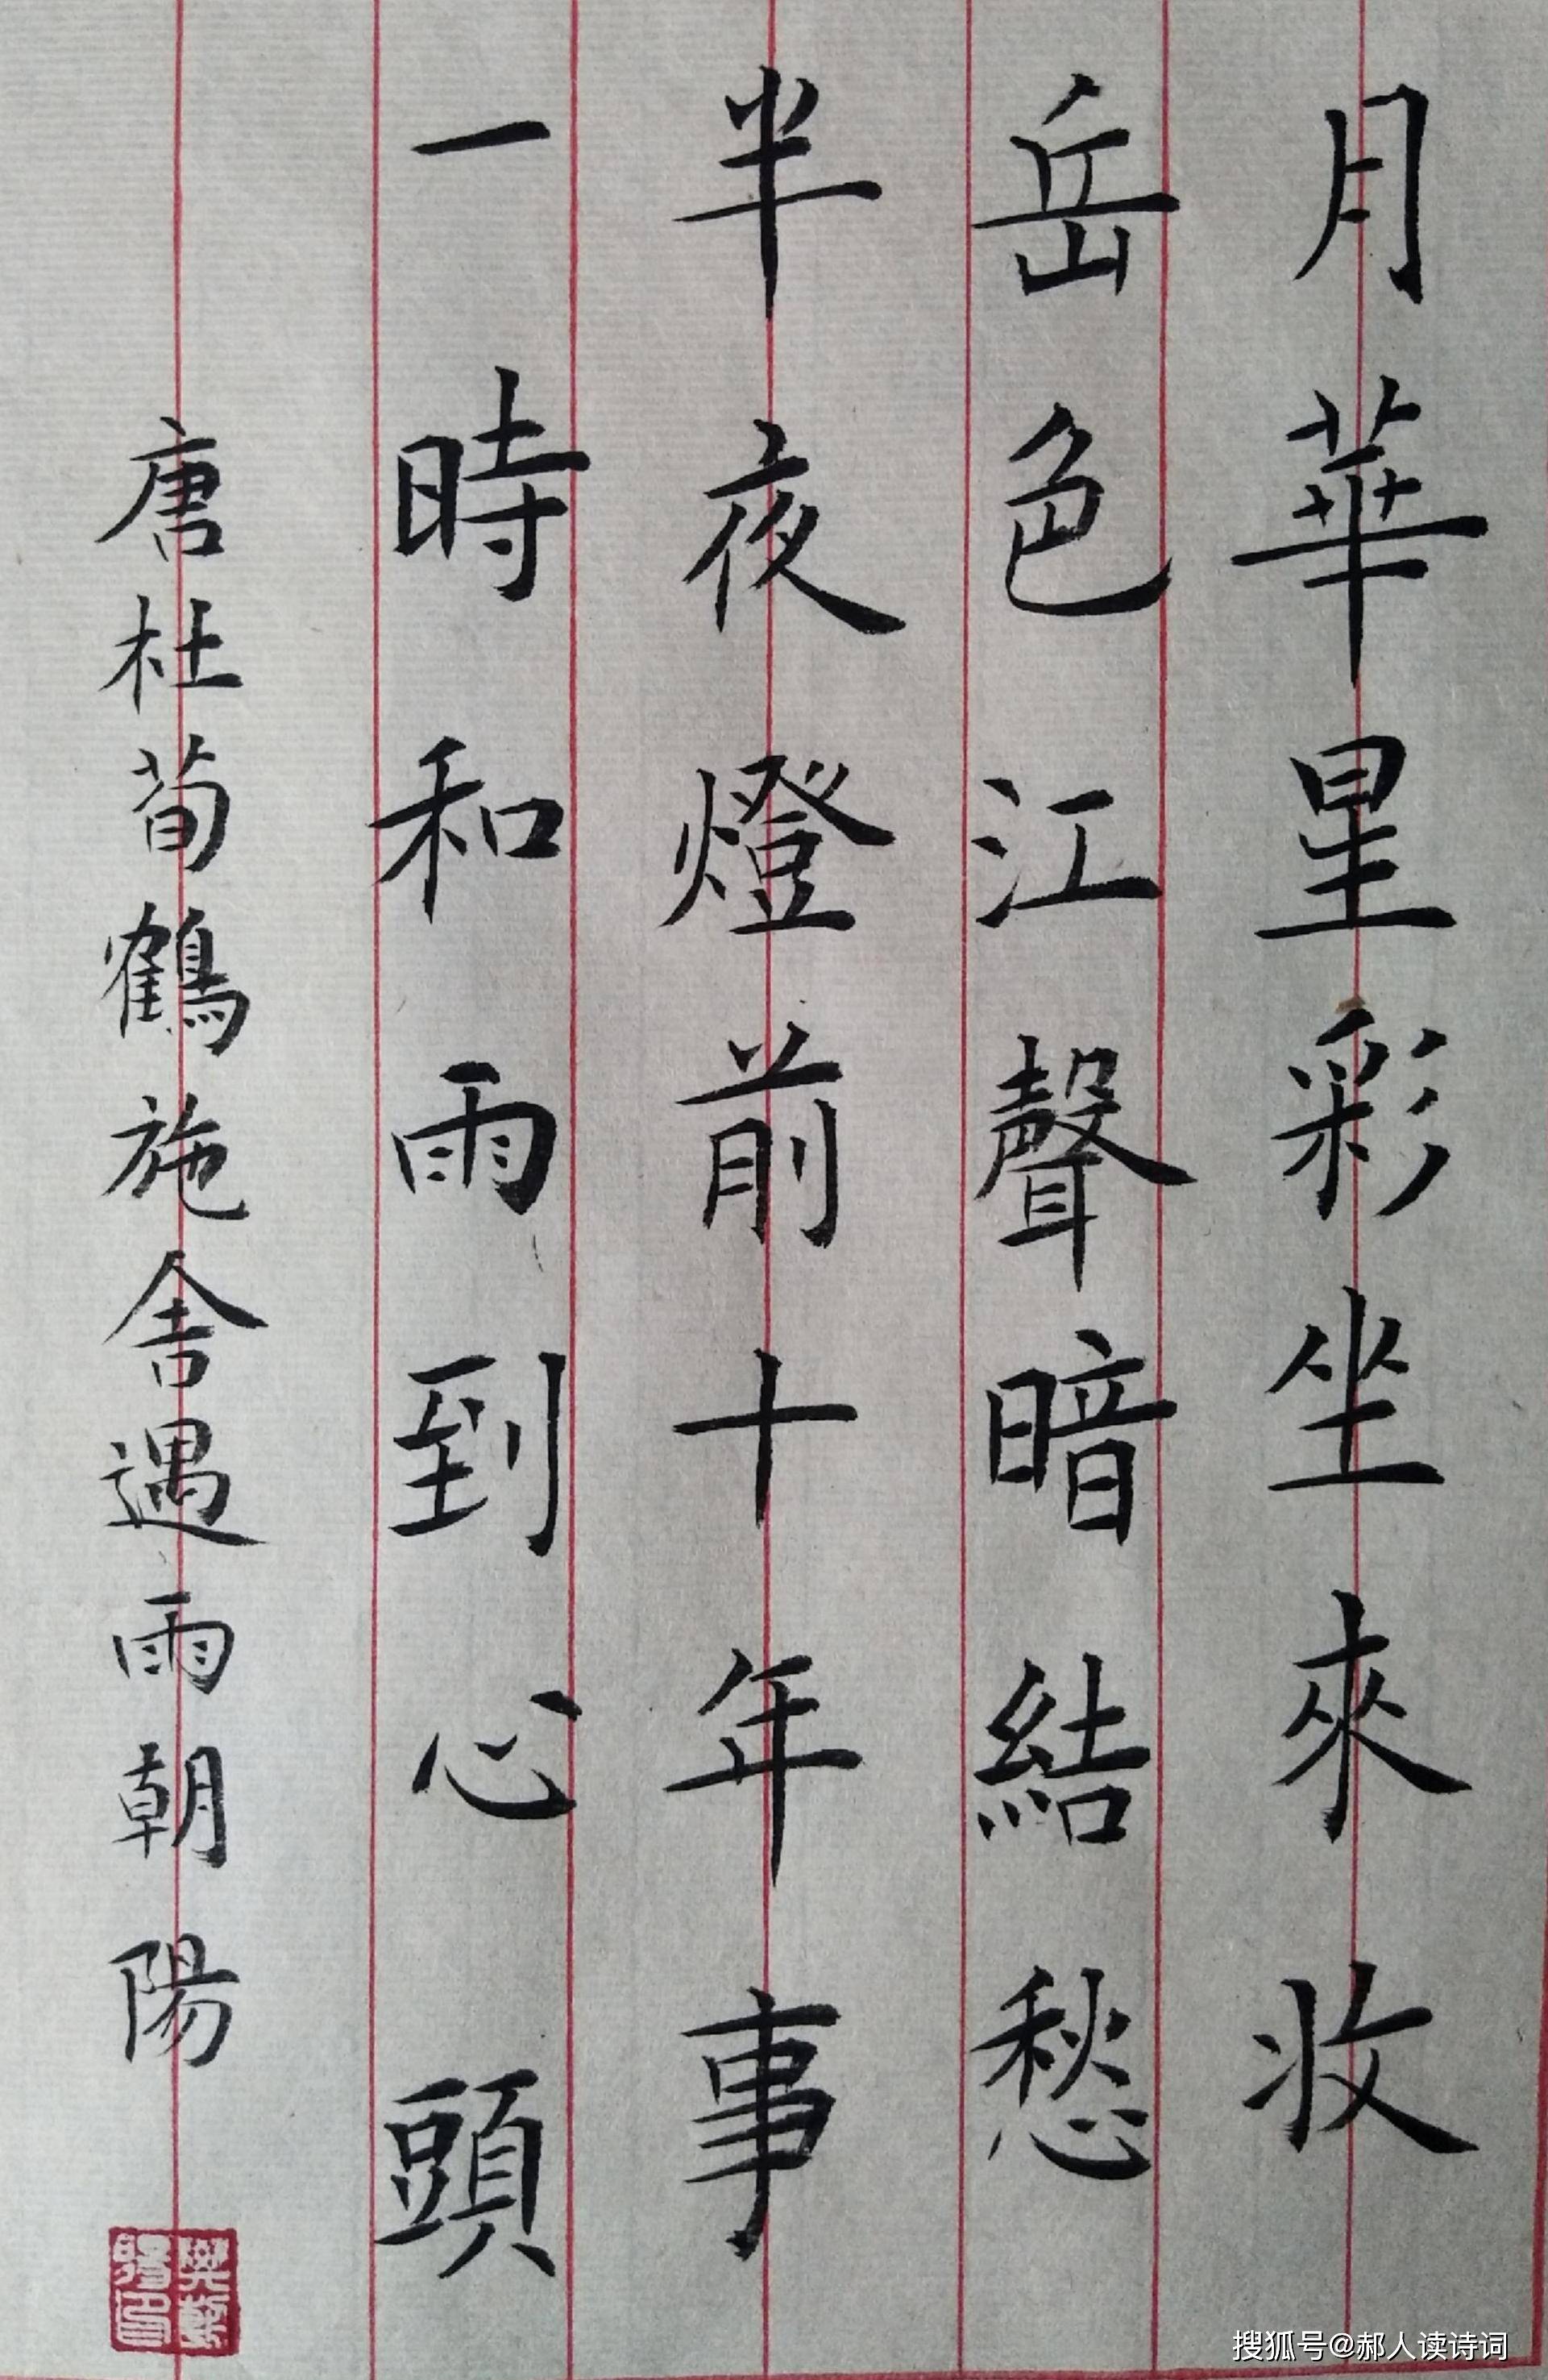 月華星彩坐來收
岳色江聲暗結愁
半夜燈前十年事
一時和雨到心頭
唐杜荀鶴施舍遇雨朝陽
搜狐号@郝人读诗词